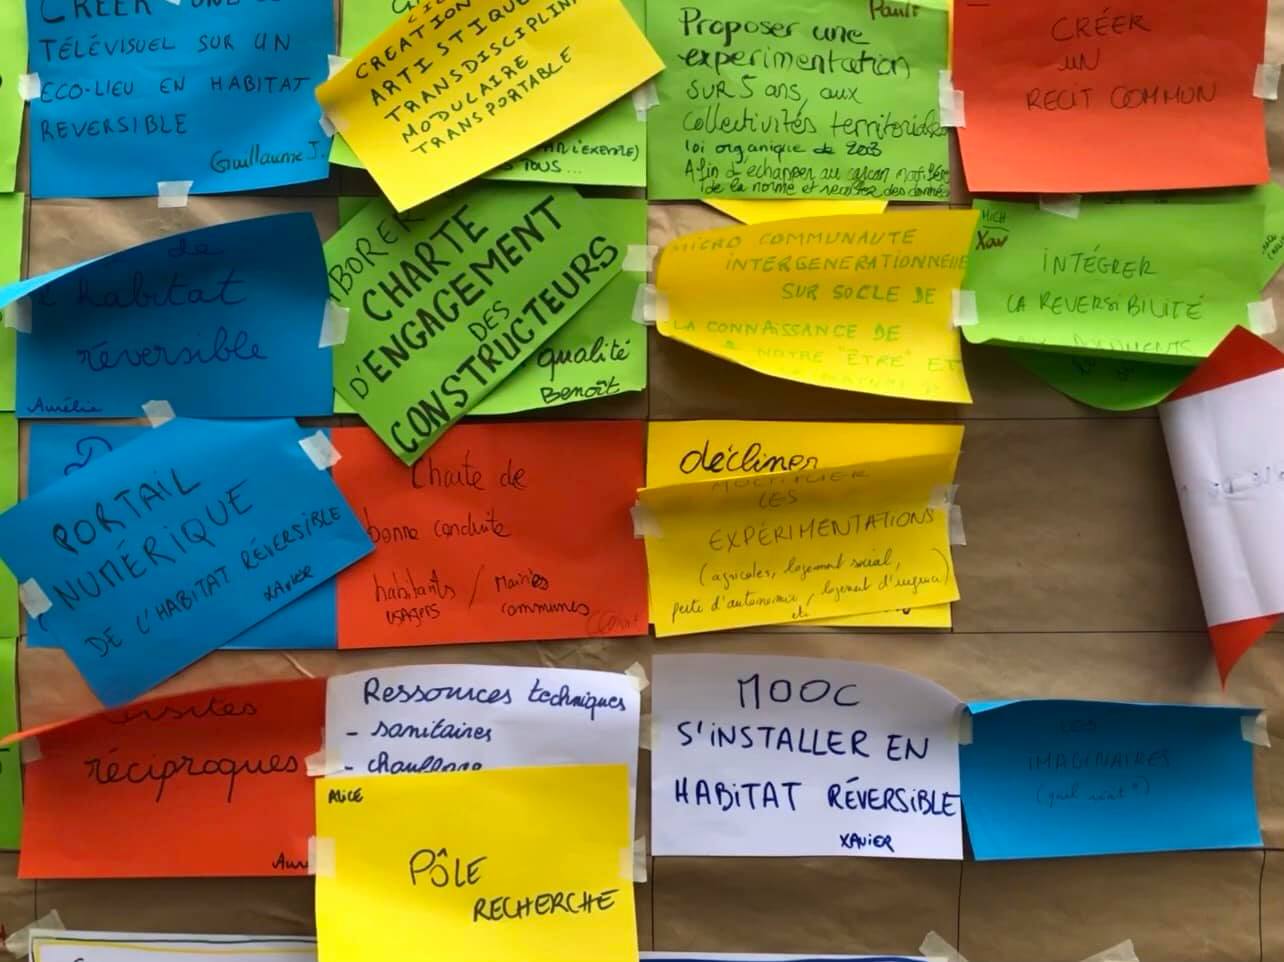 CRÉER UNE
TÉLÉVISUEL SUR UN
ECO-LIEU EN HABITAT
REVERSIBLE
Guillaume J.
CREATION
ARTISTIQUE
TRANSDISCIPLIN
MODULAIRE
TRANSPORTABLE
L'EXEMPLE)
TOUS...
Proposer une
experimentation
SUR 5 ans, aux
collectivités territoriales
loi organique de 2003
Afin d'échapper au
de la norme et des données
CRÉER
UN
RECIT COMMUN
de
habitat
réversible
Aurélie
BORER
CHARTE
D'ENGAGEMENT
DES
CONSTRUCTEURS
qualité
Benoît
MICRO COMMUNAUTE
INTERGENERATIONNELLE
SUR SOCLE DE
LA CONNAISSANCE DE
NOTRE "ÊTRE" ET
MICH
Xav
INTÉGRER
LA REVERSIBILITÉ
PORTAIL
NUMÉRIQUE
DE L'HABITAT RÉVERSIBLE
XAVIER
Charte de
bonne conduite
habitants / Mairies
USAGERS communes
décliner
MULTIPLIER
LES
EXPÉRIMENTATIONS
(agricoles, logement social,
perte d'autonomie, logement d'urgence)
etc
visites
réciproques
Ressources techniques
- sanitaires
- chauffage
ALICE
PÔLE
RECHERCHE
MOOC
S'INSTALLER EN
HABITAT RÉVERSIBLE
XAVIER
LES
IMAGINAIRES